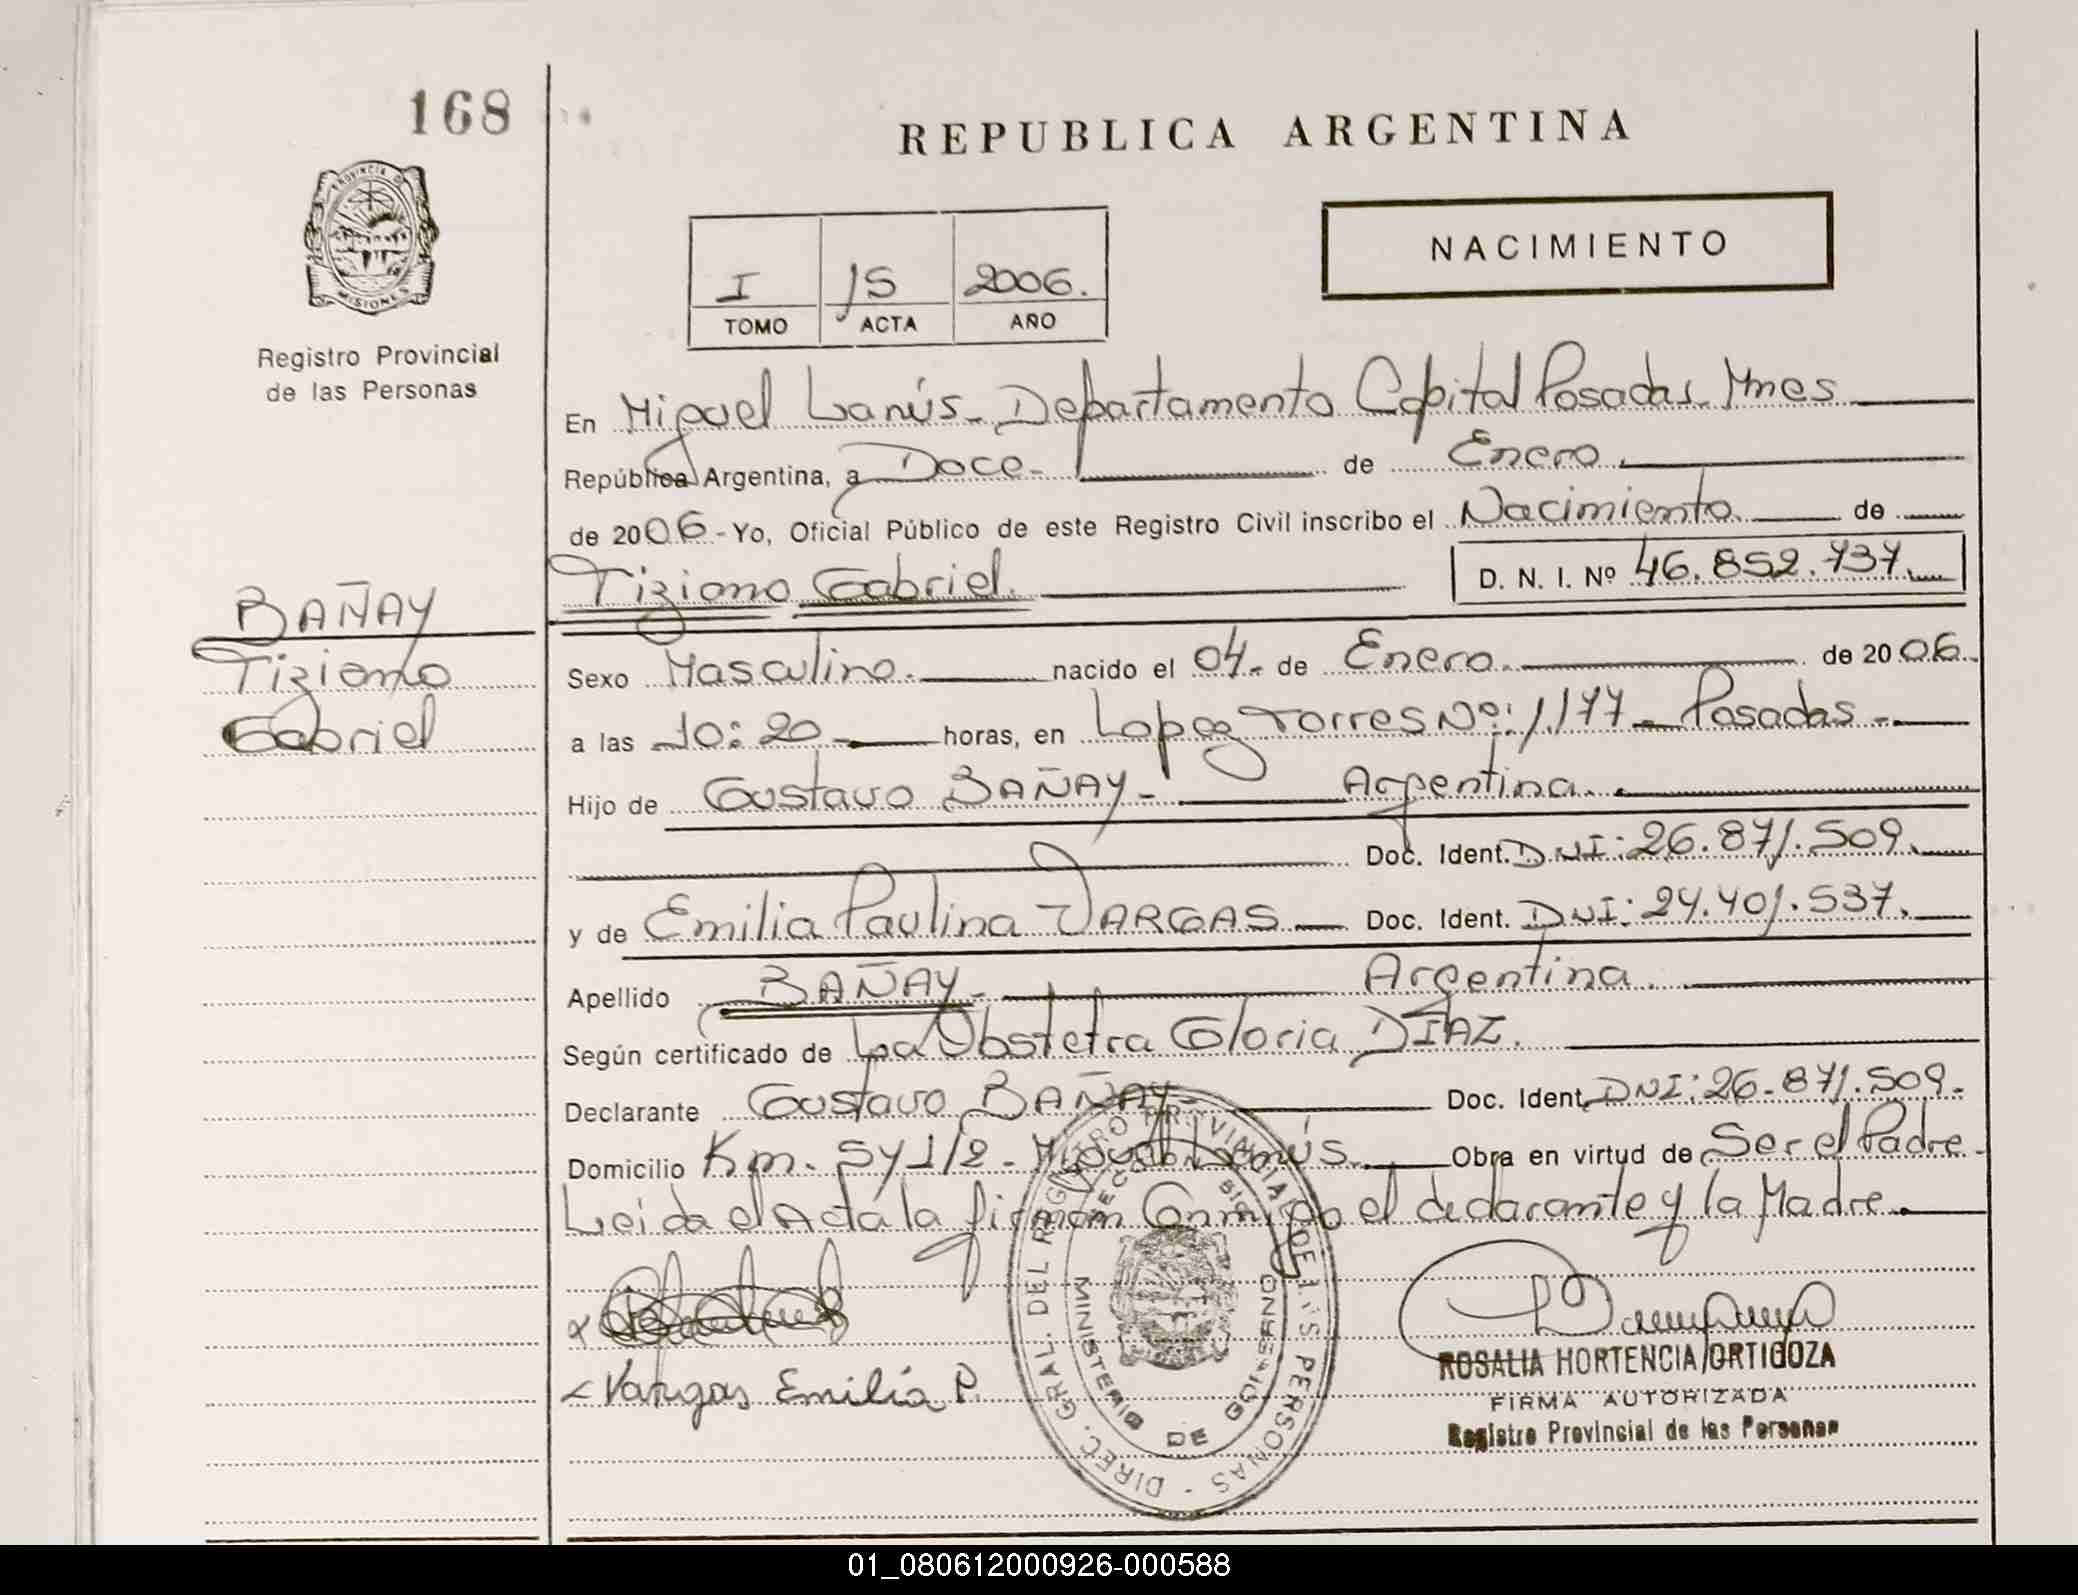 168
REPUBLICA ARGENTINA
PROVINCIA DE
MISIONES
Registro Provincial
de las Personas
NACIMIENTO
I 15 2006.
TOMO ACTA AÑO
En Miguel Lanús - Departamento Capital Posadas Mnes
República Argentina, a Doce - de Enero
de 2006 - Yo, Oficial Público de este Registro Civil inscribo el Nacimiento de
Tiziano Gabriel. D. N. I. Nº 46.852.737.
BAÑAY
Tiziano
Gabriel
Sexo Masculino. nacido el 04. de Enero. de 2006.
a las 10:20 horas, en Lopez Torres Nº: 1.177 - Posadas -
Hijo de Gustavo BAÑAY - Argentina.
Doc. Ident. DNI: 26.871.509.
y de Emilia Paulina VARGAS Doc. Ident. DNI: 24.401.537.
Apellido BAÑAY - Argentina.
Según certificado de La Obstetra Gloria DÍAZ.
Declarante Gustavo BAÑAY - Doc. Ident. DNI: 26.871.509.
Domicilio Km. 5 y 1/2 - Miguel Lanús. Obra en virtud de Ser el Padre
Leida el Acta la firman Conmigo el declarante y la Madre
Vargas Emilia P.
DIREC. GRAL. DEL REGISTRO PROVINCIAL DE LAS PERSONAS
MINISTERIO DE GOBIERNO
ROSALIA HORTENCIA ORTIGOZA
FIRMA AUTORIZADA
Registro Provincial de las Personas
01_080612000926-000588